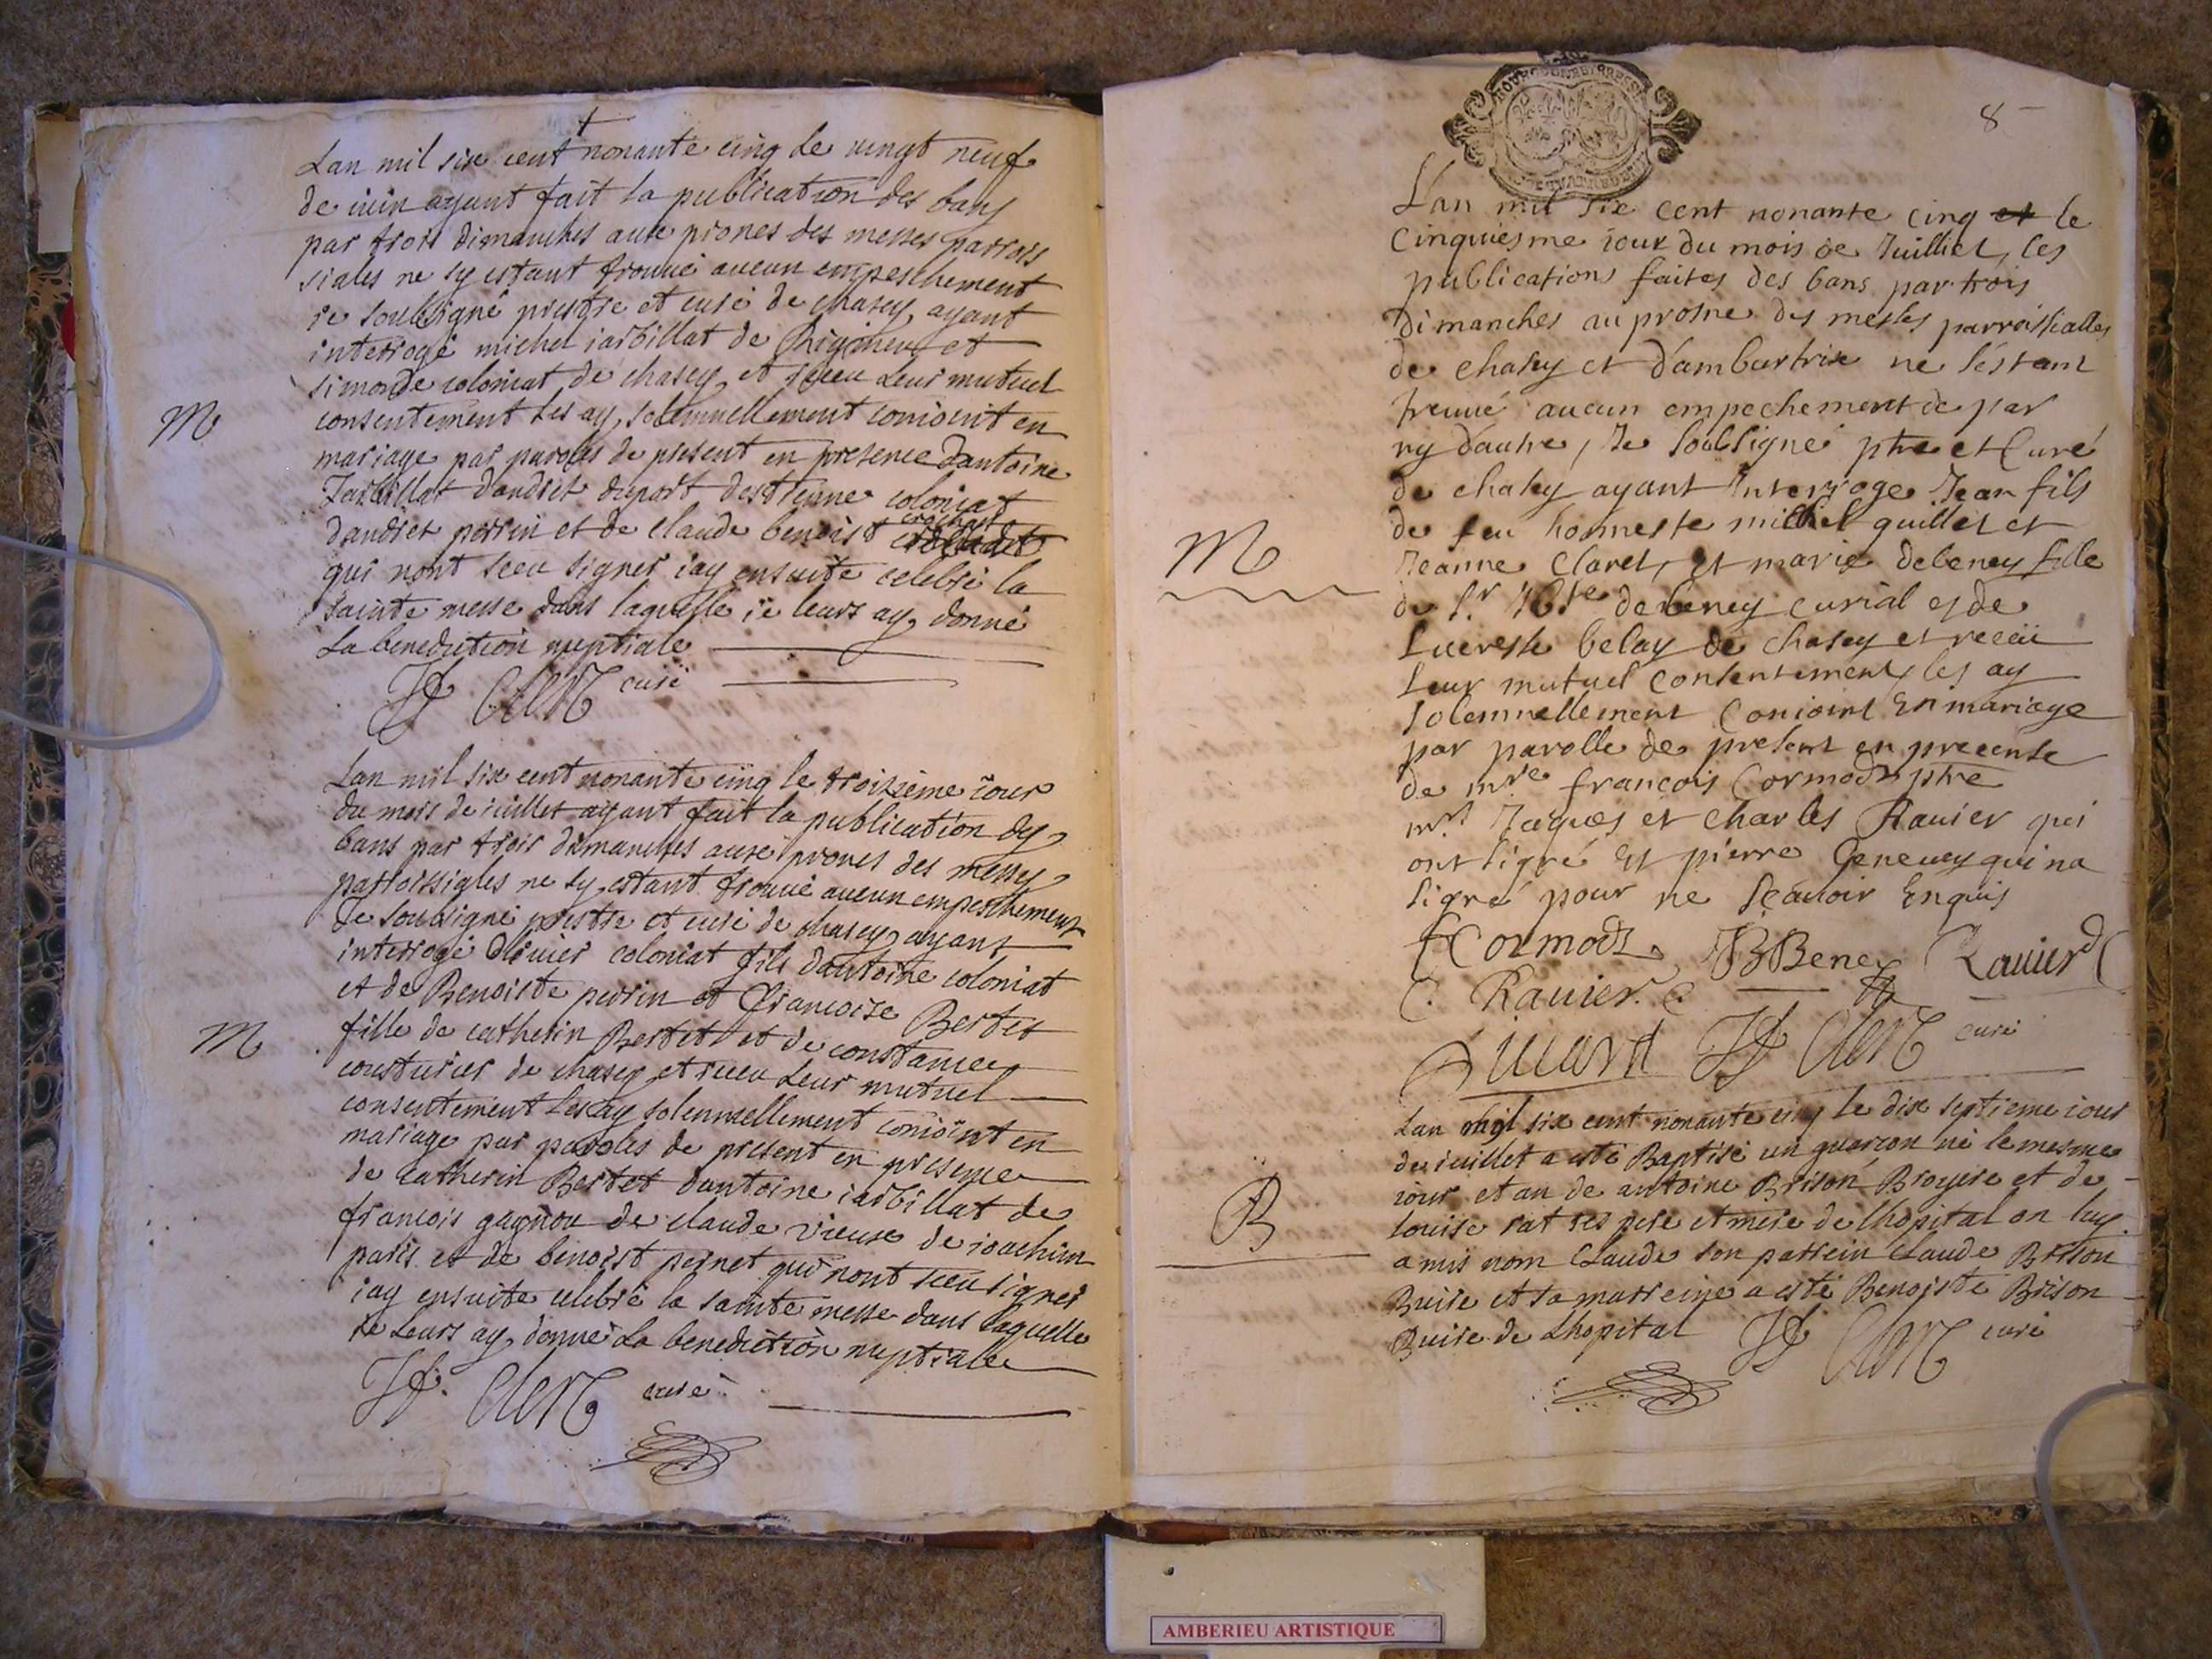 Lan mil six cent nonante cinq le vingt neuf
de iuin ayant fait la publication des bans
par trois dimanches aux prones des messes parrois
siales ne sy estant trouué aucun empeschement
ie soubsigné prestre et curé de chasey ayant
interrogé michel iarbillat de Rignieu et
simonde coloniat de chasey et receu leur mutuel
consentement les ay solemnellement conioint en
mariage par paroles de present en presence dantoine
Jarbillat dandret duport destienne coloniat
dandret perrin et de claude benoist
qui nont sceu signer iay ensuite celebré la
sainte messe dans laquelle ie leurs ay donné
La benediction nuptiale
Clerc curé
M
Lan mil six cent nonante cinq le troisieme iour
du mois de iuillet ayant fait la publication des
bans par trois dimanches aux prones des messes
parroissiales ne sy estant trouué aucun empeschement
Je soubsigné prestre et curé de chasey ayant
interrogé oliuier coloniat fils dantoine coloniat
et de Benoiste perrin et francoise Bertet
fille de catherin Bertet et de constance
cousturier de chasey et receu leur mutuel
consentement les ay solennellement conioint en
mariage par paroles de present en presence
de catherin Bertet dantoine iarbillat de
francois gagnou de claude vieux de ioachim
paris et de benoist pernet qui nont sceu signer
iay ensuite celebré la sainte messe dans laquelle
ie leurs ay donné la benediction nuptiale
Clerc curé
M
8
L'an mil six cent nonante cinq et le
cinquiesme iour du mois de Juilliet, les
publications faites des bans par trois
dimanches au prosne des messes parroissialles
de chasey et d'ambutrix ne s'estant
treuué aucun empechement de par
ny d'autre, Je soubsigné ptre et Curé
de chasey ayant Interrogé Jean fils
de feu honneste michel quillet et
Jeanne Claret, et marie debeney fille
de Sr debeney curial et de
Lucresse belay de chasey et receü
Leur mutuel consentement, les ay
solemnellement conioint En mariage
par parolle de present en presence
de mre francois Cormodz ptre
mrs Jaques et Charles Rauier qui
ont signé Et pierre Geneuey qui na
signé pour ne scauoir Enquis
Cormodz BBeney Rauier
C. Rauier
Clerc curé
M
Lan mil six cent nonante cinq le dix septieme iour
de iuillet a esté Baptisé un guarcon né le mesme
iour et an de antoine Brison Broyere et de
louise rat ses pere et mere de lhopital on luy
a mis nom Claude son parrein Claude Brison
Buire et sa marreine a esté Benoiste Brison
Buire de Lhopital Clerc curé
B
AMBERIEU ARTISTIQUE